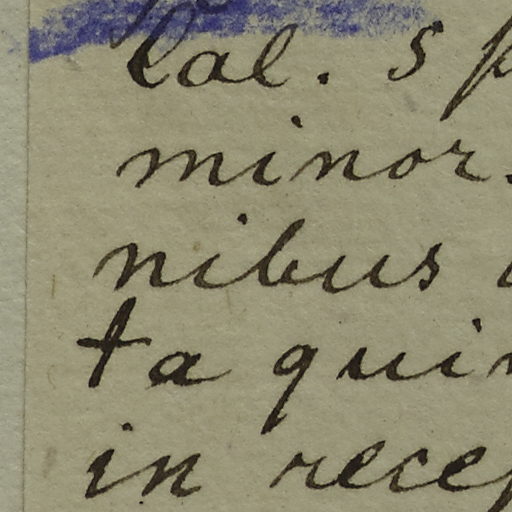 Cal. sp
minor.
nibus
ta quin
in recep